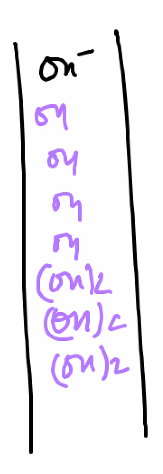 OH⁻
OH
OH
OH
OH
(OH)2
(OH)2
(OH)2